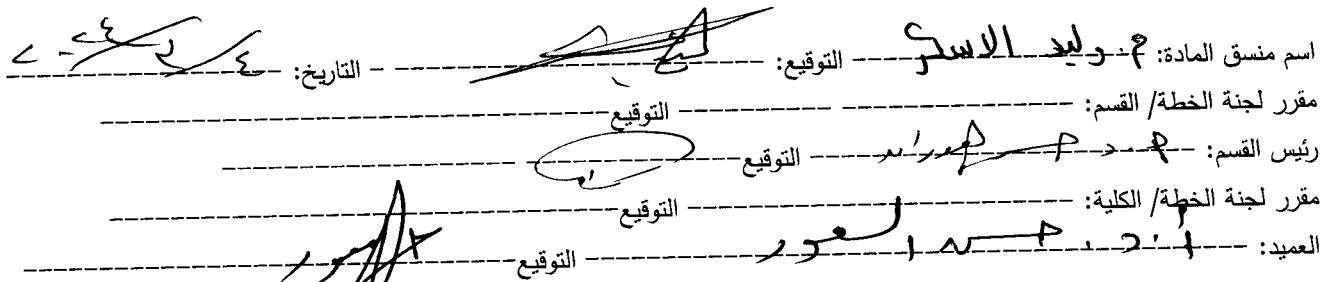 اسم منسق المادة: م. وليد الاسكر التوقيع: التاريخ: ٤/٣/٢٠٢٤
مقرر لجنة الخطة/ القسم: التوقيع
رئيس القسم: التوقيع
مقرر لجنة الخطة/ الكلية: التوقيع
العميد: أ.د. حسن السعود التوقيع